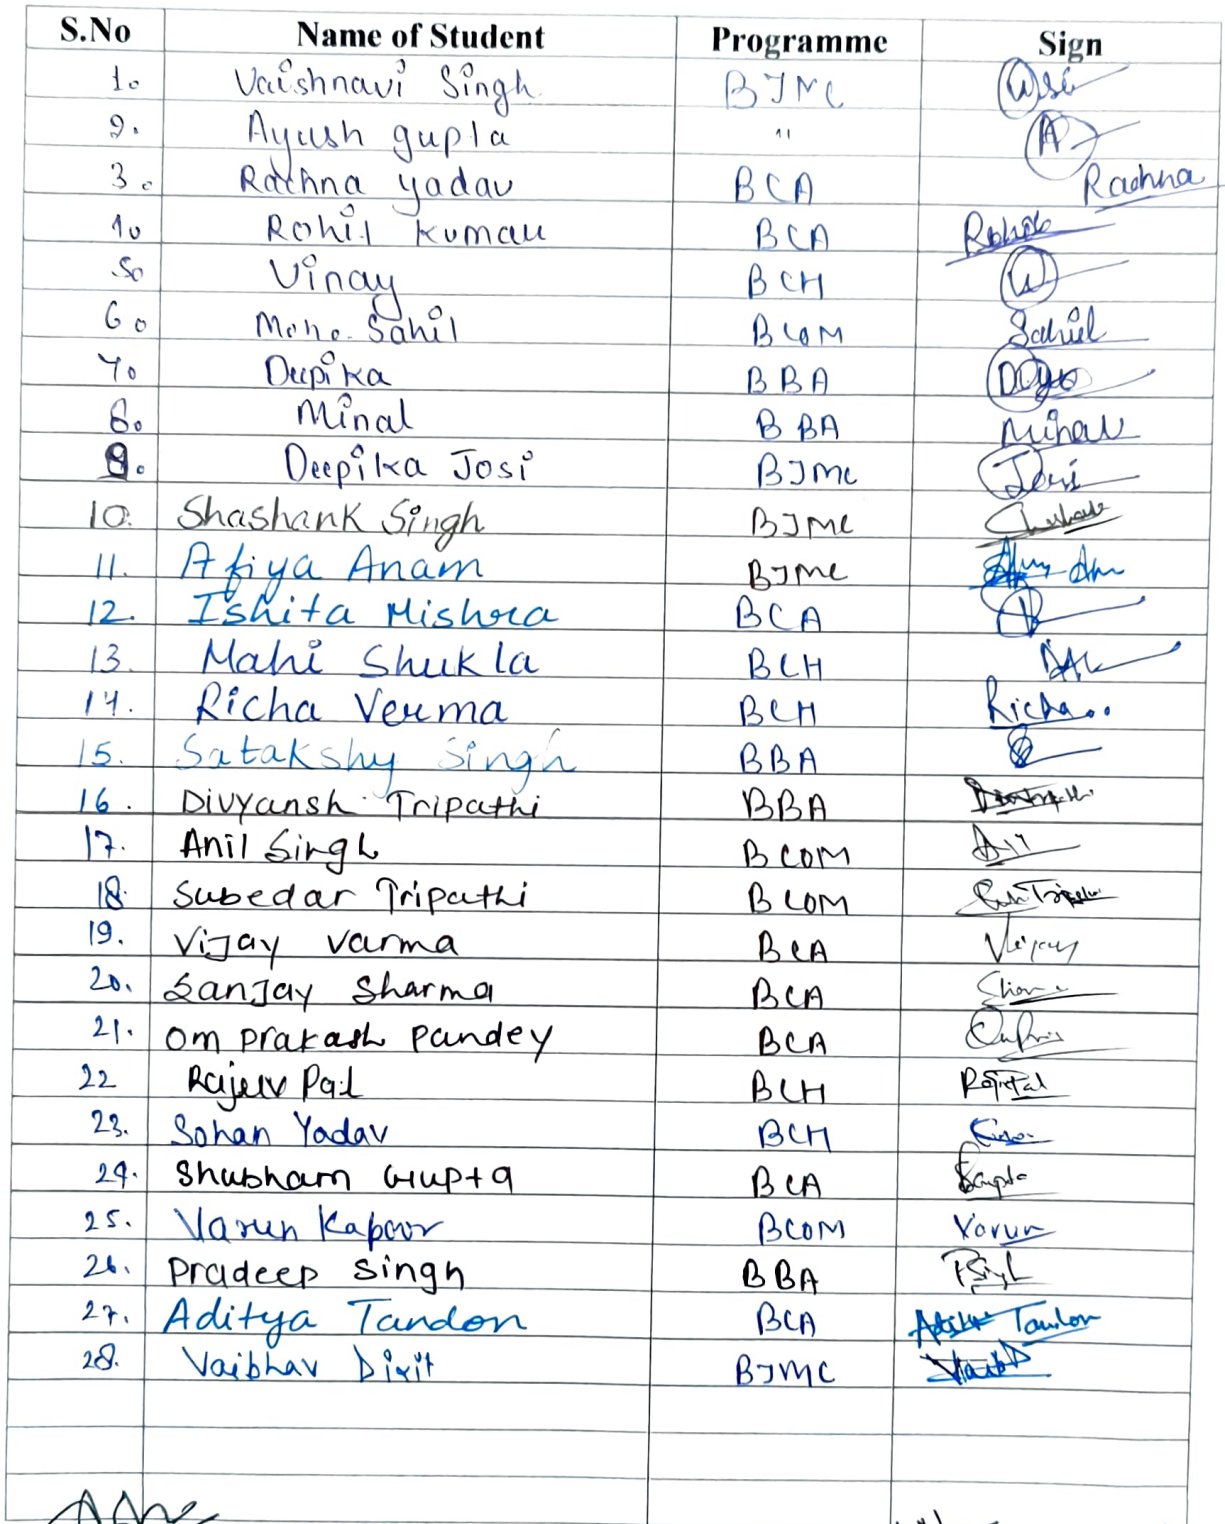 S.No Name of Student Programme Sign
1. Vaishnavi Singh BJMC
2. Ayush gupta "
3. Rachna yadav BCA Rachna
Rohit Kumar BCA Rohit
5. Vinay BCH
6. Mohd. Sahil BCOM Sahil
7. Deepika BBA
8. Minal BBA Minal
9. Deepika Josi BJMC Josi
10. Shashank Singh BJMC
11. Afiya Anam BJMC
12. Ishita Mishra BCA
13. Mahi Shukla BCH
14. Richa Verma BCH Richa..
15. Satakshy Singh BBA
16. Divyansh Tripathi BBA
17. Anil Singh BCOM
18. Subedar Tripathi BCOM
19. Vijay Varma BCA Vijay
20. Sanjay Sharma BCA
21. Om prakash pandey BCA
22 Rajeev Pal BCH
23. Sohan Yadav BCH
24. Shubham Gupta BCA
25. Varun Kapoor BCOM Varun
26. Pradeep Singh BBA
27. Aditya Tandon BCA Tandon
28. Vaibhav Dixit BJMC